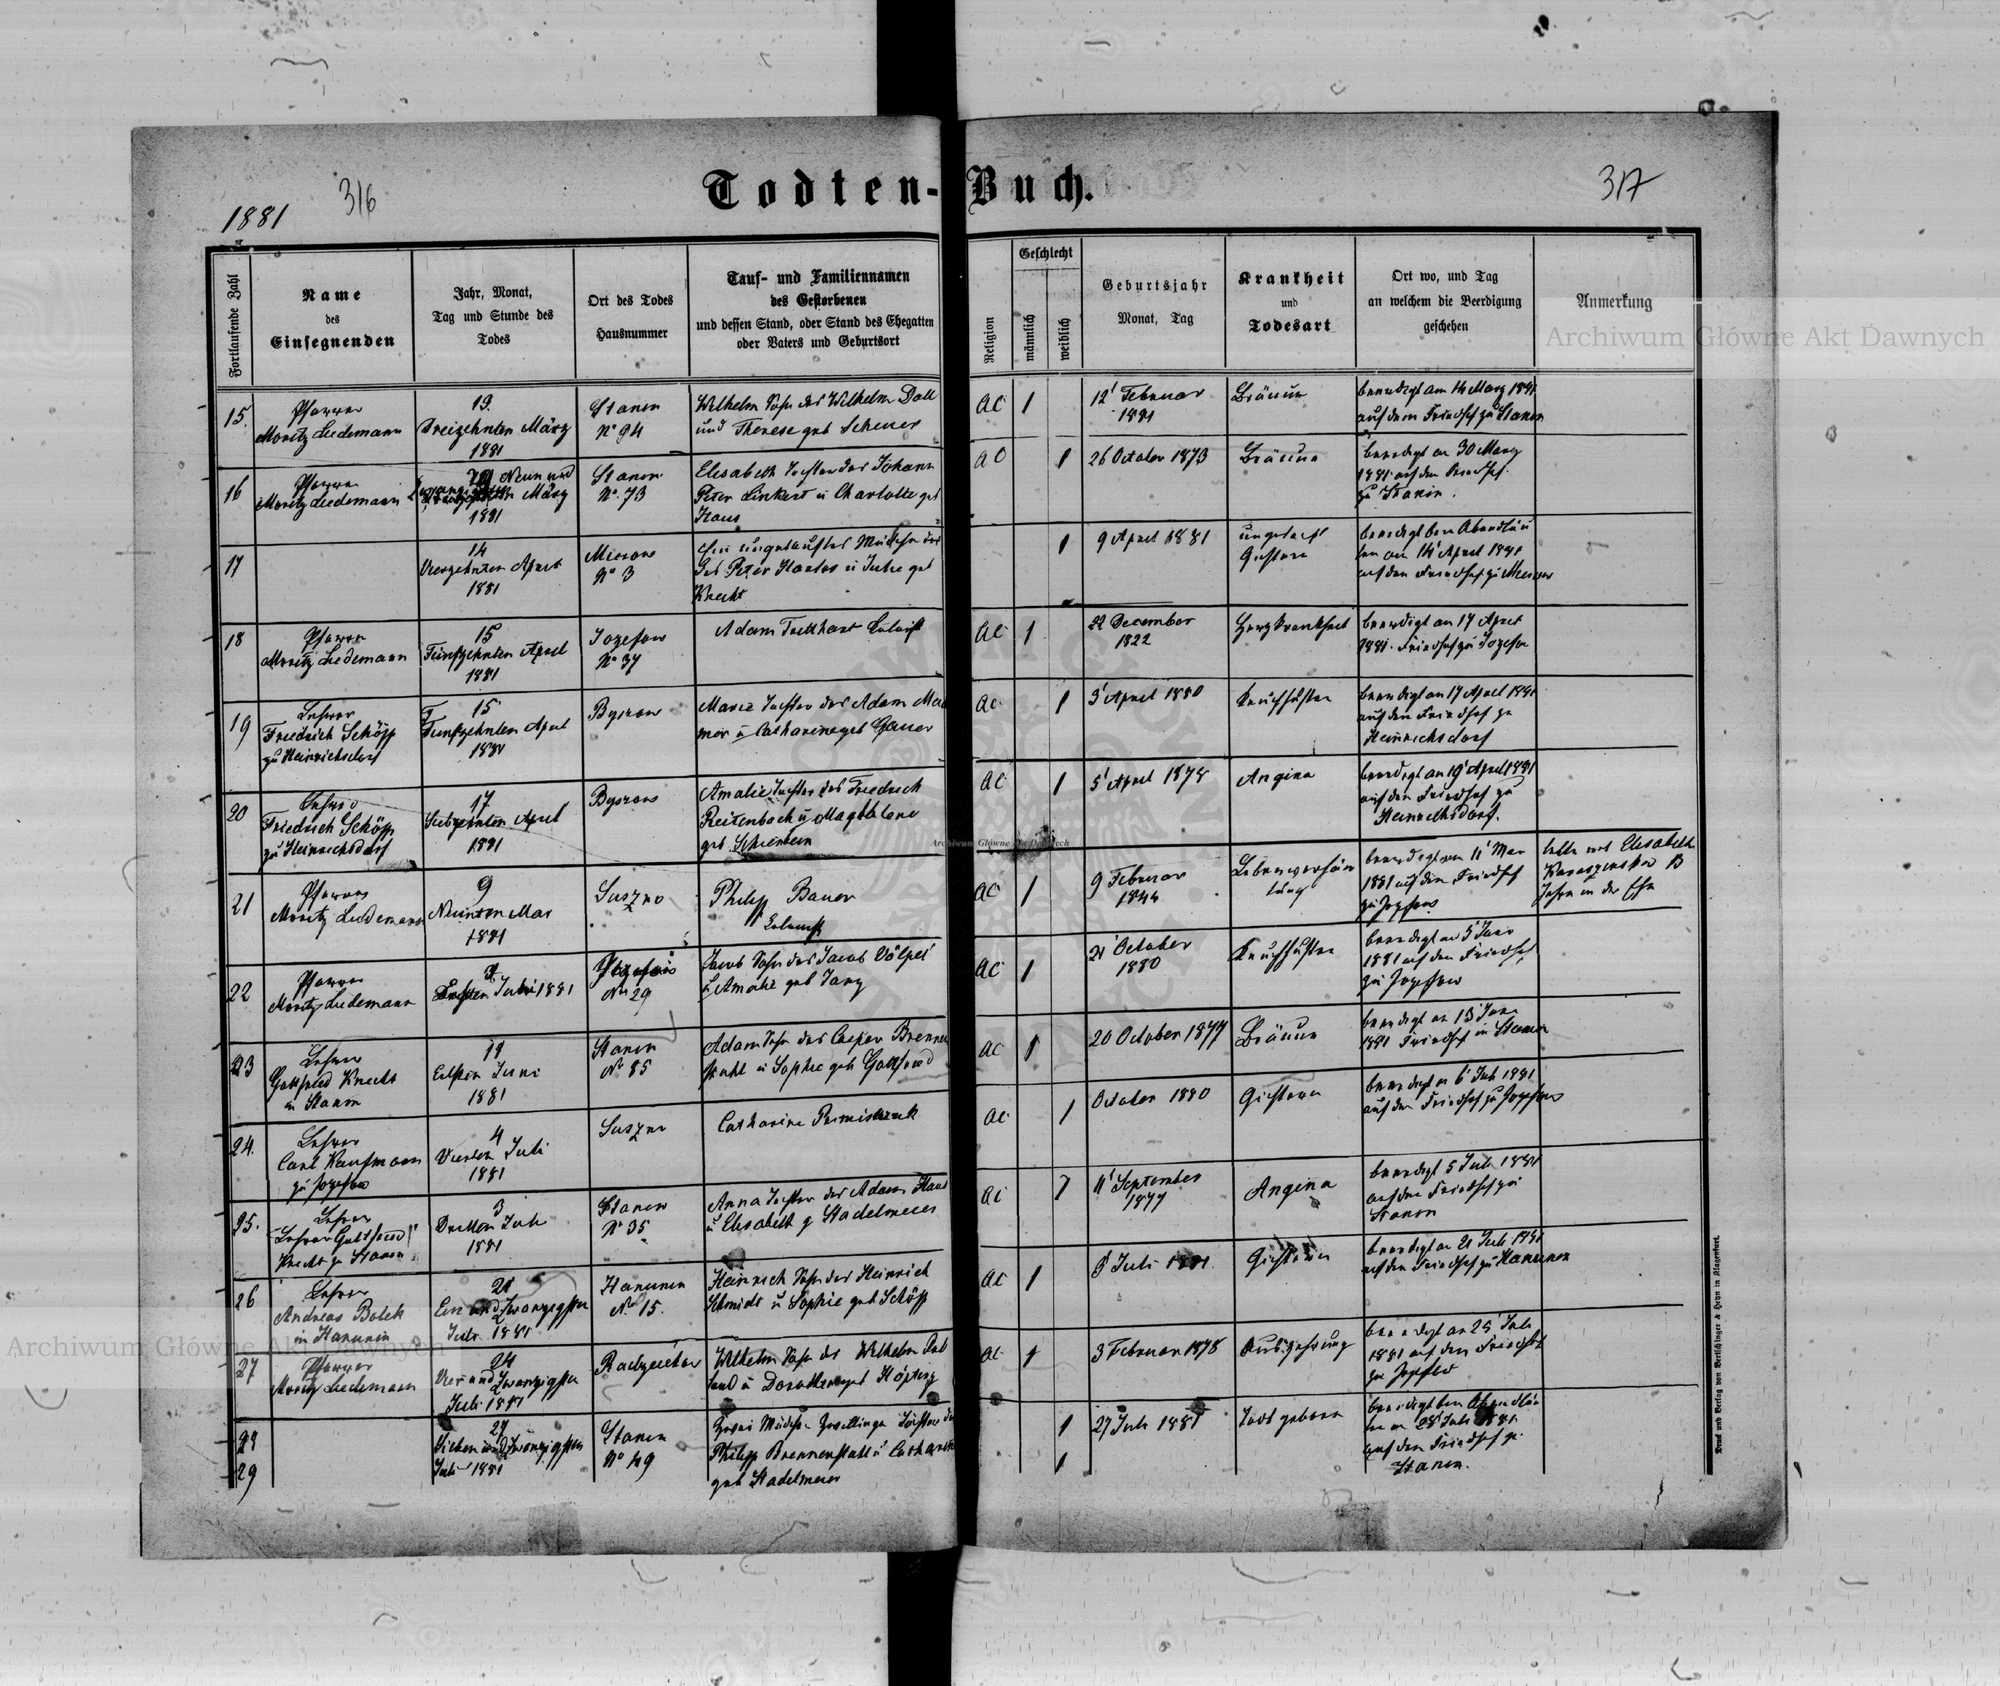 316
Todten-Buch.
317
1881
Fortlaufende Zahl
Name
des
Einsegnenden
Jahr, Monat,
Tag und Stunde des
Todes
Ort des Todes
Hausnummer
Tauf- und Familiennamen
des Gestorbenen
und dessen Stand, oder Stand des Ehegatten
oder Vaters und Geburtsort
Religion
Geschlecht
männlich
weiblich
Geburtsjahr
Monat, Tag
Krankheit
und
Todesart
Ort wo, und Tag
an welchem die Beerdigung
geschehen
Anmerkung
15.
Pfarrer
Moritz Liedemann
13.
Dreizehnten März
1881
Stanin
No 94
Wilhelm Sohn des Wilhelm Doll
und Therese geb Scherer
AC
1
12' Februar
1881
Bräune
beerdigt am 14 März 1881
auf dem Friedhof zu Stanin
16
Pfarrer
Moritz Liedemann
29 Neun und
März
1881
Stanin
No. 73
Elisabeth Tochter des Johann
Peter Linkert u Charlotte geb
Haus
AC
1
26 October 1873
Bräune
beerdigt am 30 März
1881 auf dem Friedhof
zu Stanin.
17
14
Vierzehnten April
1881
Mierow
No 3
Ein ungetauftes Mädchen des
Peter u Julie geb
Knecht
1
9 April 1881
beerdigt beim Abendläu
ten am 14' April 1881
auf dem Friedhof zu Mierow
18
Pfarrer
Moritz Liedemann
15
Fünfzehnten April
1881
Jozefow
No 37
Adam
AC
1
22 December
1822
Herzkrankheit
beerdigt am 17 April
1881. Friedhof zu Jozefow
19
Lehrer
Friedrich Schöpp
zu Heinrichsdorf
15
Fünfzehnten April
1881
Byszow
Marie Tochter des Adam
u Catharine geb Gauer
AC
1
3' April 1880
Keuchhusten
beerdigt am 17 April 1881
auf dem Friedhof zu
Heinrichsdorf
20
Lehrer
Friedrich Schöpp
zu Heinrichsdorf
17
Siebzehnten April
1881
Byszow
Amalie Tochter des Friedrich
Reitenbach u Magdalene
geb
AC
1
5' April 1878
Angina
beerdigt am 19' April 1881
auf dem Friedhof zu
Heinrichsdorf.
21
Pfarrer
Moritz Liedemann
9
Neunten Mai
1881
Suszno
Philipp Bauer
AC
1
9 Februar
1844
Leberverhär
tung
beerdigt am 11' Mai
1881 auf dem Friedhof
zu Jozefow
lebte mit Elisabeth
13
Jahre in der Ehe
22
Pfarrer
Moritz Liedemann
1881
Jozefow
No 29
Jacob Sohn des Jacob Völpel
u Amalie geb Jany
AC
1
21' October
1880
Keuchhusten
beerdigt am 5'
1881 auf dem Friedhof
zu Jozefow
23
Lehrer
Gottfried Knecht
in Stanin
11
Eilften Juni
1881
Stanin
No 85
Adam Sohn des Caspar Brennen
stuhl u Sophie geb Gottfried
AC
1
20 October 1877
Bräune
beerdigt am 13 Juni
1881 Friedhof in Stanin
24.
Lehrer
Carl Kaufmann
zu Jozefow
4
Vierten Juli
1881
Suszno
Catharina
AC
1
October 1880
beerdigt am 6' Juli 1881
auf dem Friedhof zu Jozefow
25.
Lehrer
Lehrer Gottfried
Knecht zu Stanin
3
Dritten Juli
1881
Stanin
No 35
Anna Tochter des Adam Haus
u Elisabeth g Stadelmeier
AC
1
11' September
1877
Angina
beerdigt 5 Juli 1881
auf dem Friedhof zu
Stanin
26
Lehrer
Andreas Bolek
in Hanunin
21
Ein und Zwanzigsten
Juli 1881
Hanunin
No. 15.
Heinrich Sohn des Heinrich
Schmidt u Sophie geb Schöpp
AC
1
Juli 1881
beerdigt am 21 Juli 1881
auf dem Friedhof zu Hanunin
27
Pfarrer
Moritz Liedemann
24
Vier und Zwanzigsten
Juli 1881
Radziechow
Wilhelm Sohn des Wilhelm
u Dorothea geb
AC
1
3 Februar 1878
Auszehrung
beerdigt am 25' Juli
1881 auf dem Friedhof
zu Jozefow
28
29
27
Sieben und Zwanzigsten
Juli 1881
Stanin
No 49
Zwei Mädchen Zwillinge Töchter des
Philipp Brennenstuhl u Catharina
geb Stadelmeier
1
1
27 Juli 1881
Todt geboren
beerdigt beim Abendläu
ten am 28' Juli 1881
auf dem Friedhof zu
Stanin.
Druck und Verlag von Bertschinger & Heyn in Klagenfurt.
Archiwum Główne Akt Dawnych
Archiwum Główne Akt Dawnych
Archiwum Główne Akt Dawnych